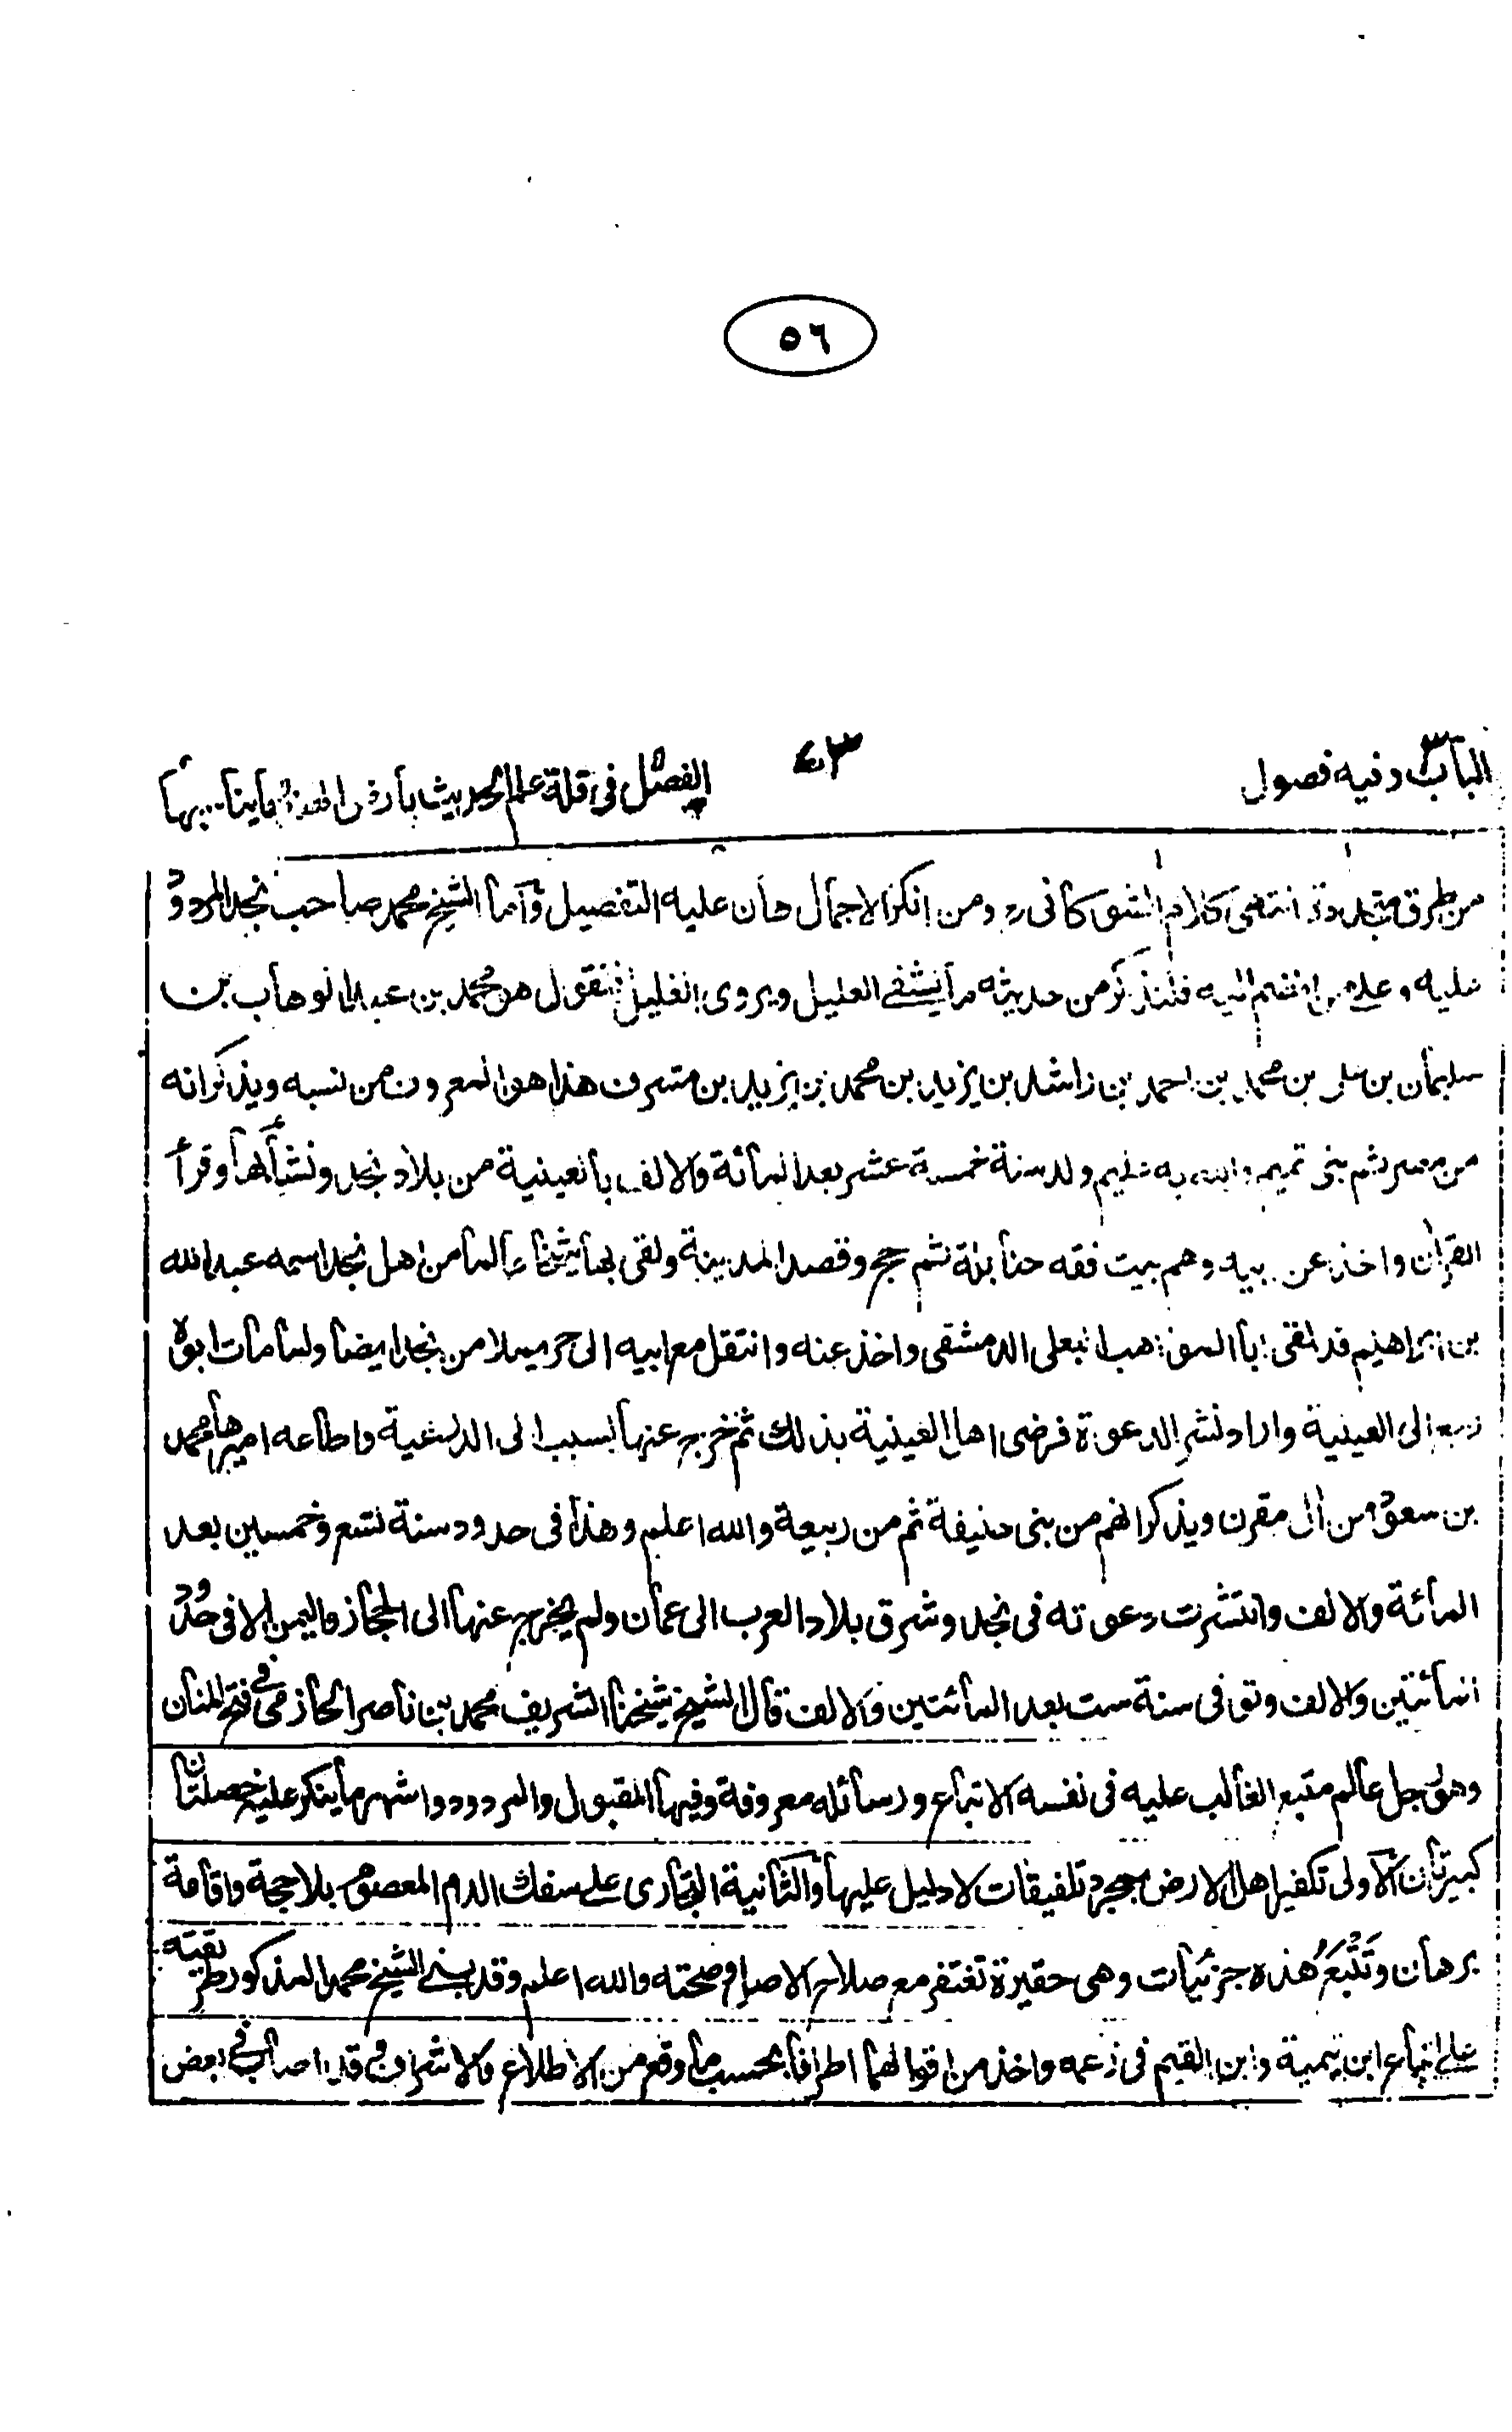 ٥٦
الباب٣ وفيه فصول
٧٣
الفصل فى قلة علم الحديث بارض الهند وما يناسبها
من طرق متعددة انتهى كلام الشوكانى ره ومن انكر الاجمال هان عليه التفصيل وأما الشيخ محمد صاحب نجد المردود
عليه وعلى من انضم اليه فلنذكر من حديثه ما يشفى العليل ويروى الغليل فنقول هو محمد بن عبد الوهاب بن
سليمان بن على بن محمد بن احمد بن راشد بن يزيد بن محمد بن يزيد بن مشرف هذا هو المعروف من نسبه ويذكر انه
من مضر ثم بنى تميم والله به عليم ولد سنة خمسة عشر بعد المائة والالف بالعينية من بلاد نجد ونشأ بها وقرأ
القرآن واخذ عن ابيه وهم بيت فقه حنابلة ثم حج وقصد المدينة ولقى بها شيخا عالما من اهل نجد اسمه عبد الله
بن ابراهيم قد لقى ابا المواهب البعلى الدمشقى واخذ عنه وانتقل مع ابيه الى حريملا من نجد ايضا ولما مات ابوه
رجع الى العينية واراد نشر الدعوة فرضى اهل العينية بذلك ثم خرج عنها بسبب الى الدرعية واطاعه اميرها محمد
بن سعود من آل مقرن ويذكر انهم من بنى حنيفة ثم من ربيعة والله اعلم وهذا فى حدود سنة تسع وخمسين بعد
المائة والالف وانتشرت دعوته فى نجد وشرق بلاد العرب الى عمان ولم يخرج عنها الى الحجاز واليمن الا فى حدود
المائتين والالف وتوفى سنة ست بعد المائتين والالف قال الشيخ شيخنا الشريف محمد بن ناصر الحازمى فى فتح المنان
وهو رجل عالم متبع الغالب عليه فى نفسه الاتباع ورسائله معروفة وفيها المقبول والمردود واشهر ما ينكر عليه خصلتان
كبيرتان الاولى تكفير اهل الارض بمجرد تلفيقات لا دليل عليها والثانية التجارى على سفك الدم المعصوم بلا حجة واقامة
برهان وتَتَبُّعُ هذه جزئيات وهى حقيرة تغتفر مع صلاح الاصل وصحته والله اعلم وقد بنى الشيخ محمد المذكور طريقته
على اتباع ابن تيمية وابن القيم فى زعمه واخذ من اقوالهما اطرافا بحسب ما وقع من الاطلاع والاشراف وقد اصاب فى بعض